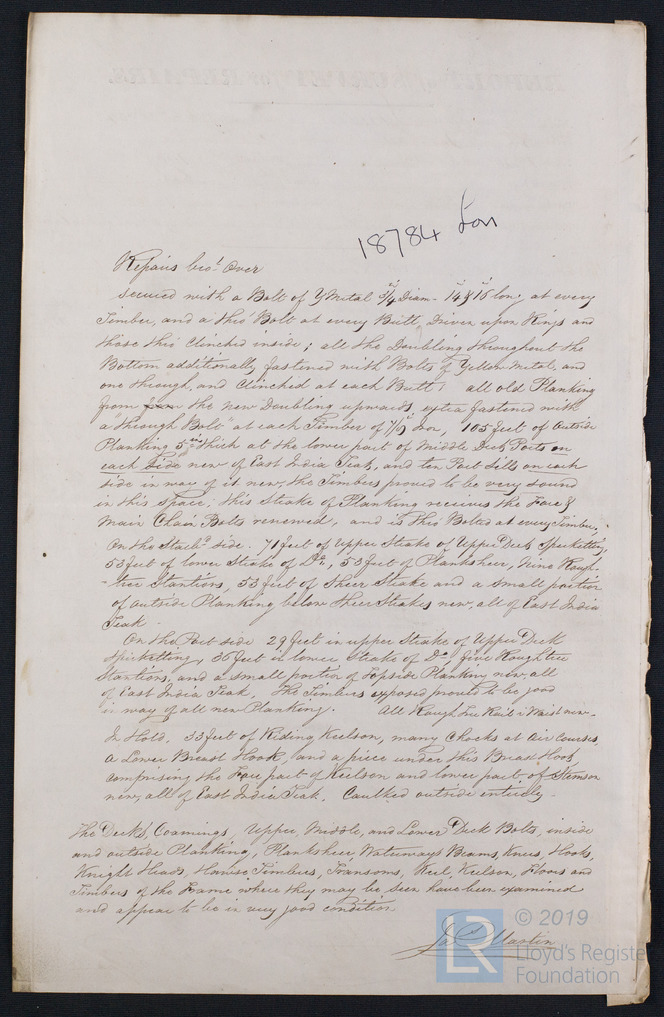 18784 Lon
Repairs bro.t Over
secured with a Bolt of Y Metal 3/4 Diam - 14 & 16 long at every
Timber, and a thro' Bolt at every Butt, Driven upon Rings and
those thro' Clinched inside; all the Doubling throughout the
Bottom additionally fastened with Bolts of Yellow Metal, and
one through, and Clinched at each Butt: all old Planking
from the new Doubling upwards, extra fastened with
a "through Bolt" at each Timber of Iron, 105 feet of Outside
Planking 5 in thick at the lower part of Middle Deck Ports on
each Side new of East India Teak, and ten Port Sills on each
side in way of it new, the Timbers proved to be very sound
in this space; this Strake of Planking receives the Fore &
Main Chain Bolts renewed, and is thro' Bolted at every Timber;
On the Starb.d side. 71 feet of Upper Strake of Upper Deck Spirketting,
53 feet of lower Strake of D.o, 53 feet of Planksheer, Nine Rough-
-tree Stantions, 53 feet of Sheer Strake and a small portion
of outside Planking below Sheer Strakes new, all of East India
Teak.
On the Port side 29 feet in upper Strake of Upper Deck
Spirketting, 36 feet in lower Strake of D.o five Roughtree
Stantions, and a small portion of Topside Planking new, all
of East India Teak, The Timbers exposed proved to be good
in way of all new Planking. All Rough Tree Rail in Waist new.
In Hold, 33 feet of Riding Keelson, many Chocks at Air Courses,
a Lower Breast Hook, and a piece under this Breast Hook,
comprising the Fore part of Keelson and lower part of Stemson
new, all of East India Teak. Caulked outside entirely.
The Decks, Coamings, Upper, Middle, and Lower Deck Bolts, inside
and outside Planking, Planksheer Waterways Beams, Knees, Hooks,
Knight Heads, Hawse Timbers, Transoms, Keel, Keelson, Floors and
Timbers of the Frame where they may be seen have been examined
and appear to be in very good condition
Ja.s Martin
LR © 2019
Lloyd's Register
Foundation